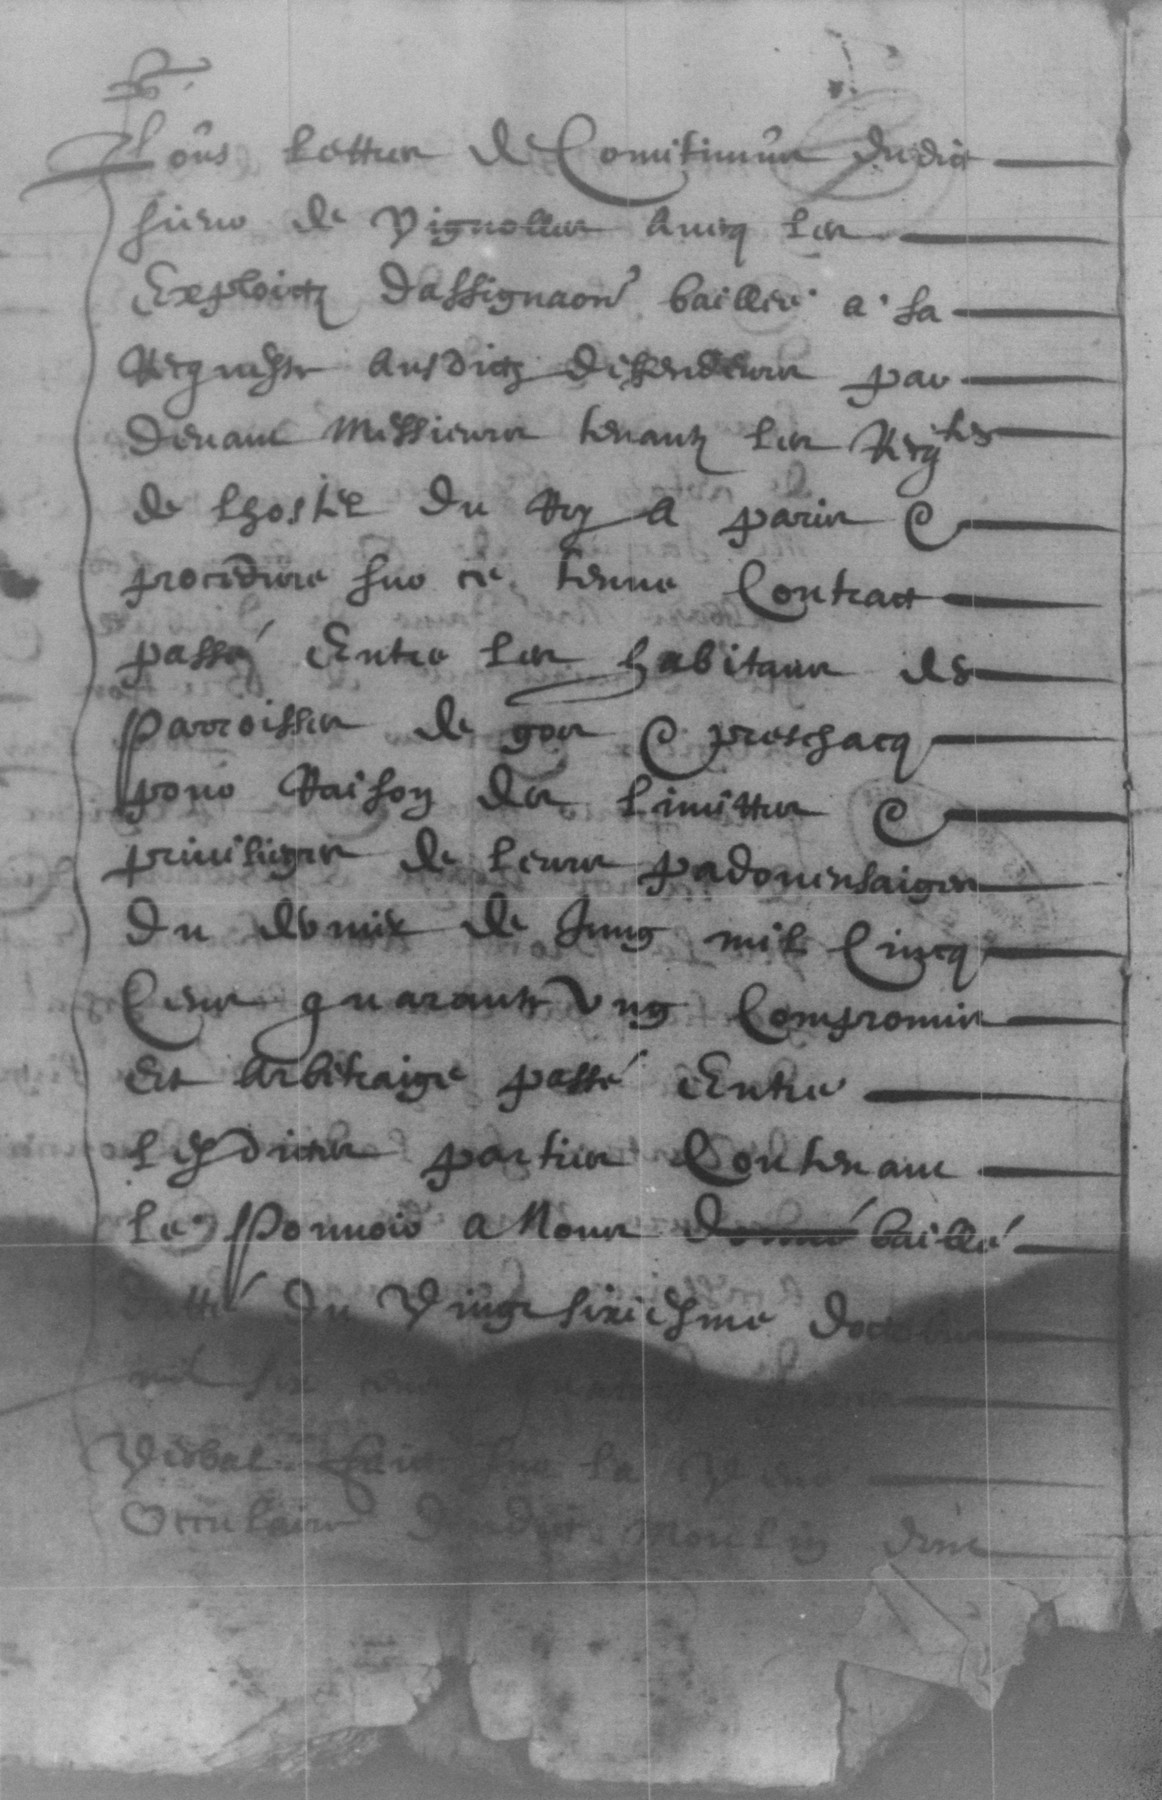 Tous Lettres de Comitimus dudict
sieur de Vignolles avecq les
Exploictz dassignaon baillée a sa
Requeste ausdictz deffendeurs par
devant Messieurs tenantz les Reqtes
de lhostel du Roy a paris &
procedure sur ce tenue Contract
passé Entre les habitans des
parroisses de gos & preschacq
pour Raison des Limittes &
privilieges de leurs padouensaiges
du de Jung mil Cincq
Cens quarante ung Compromis
et arbitraige passé Entre
lesdictes parties Contenant
le Pouvoir a Nous donné baillé
datté du Vingt sixiesme doctobre
mil six cens
Verbal faict sur la Veue
Occulaire dudict Moulin